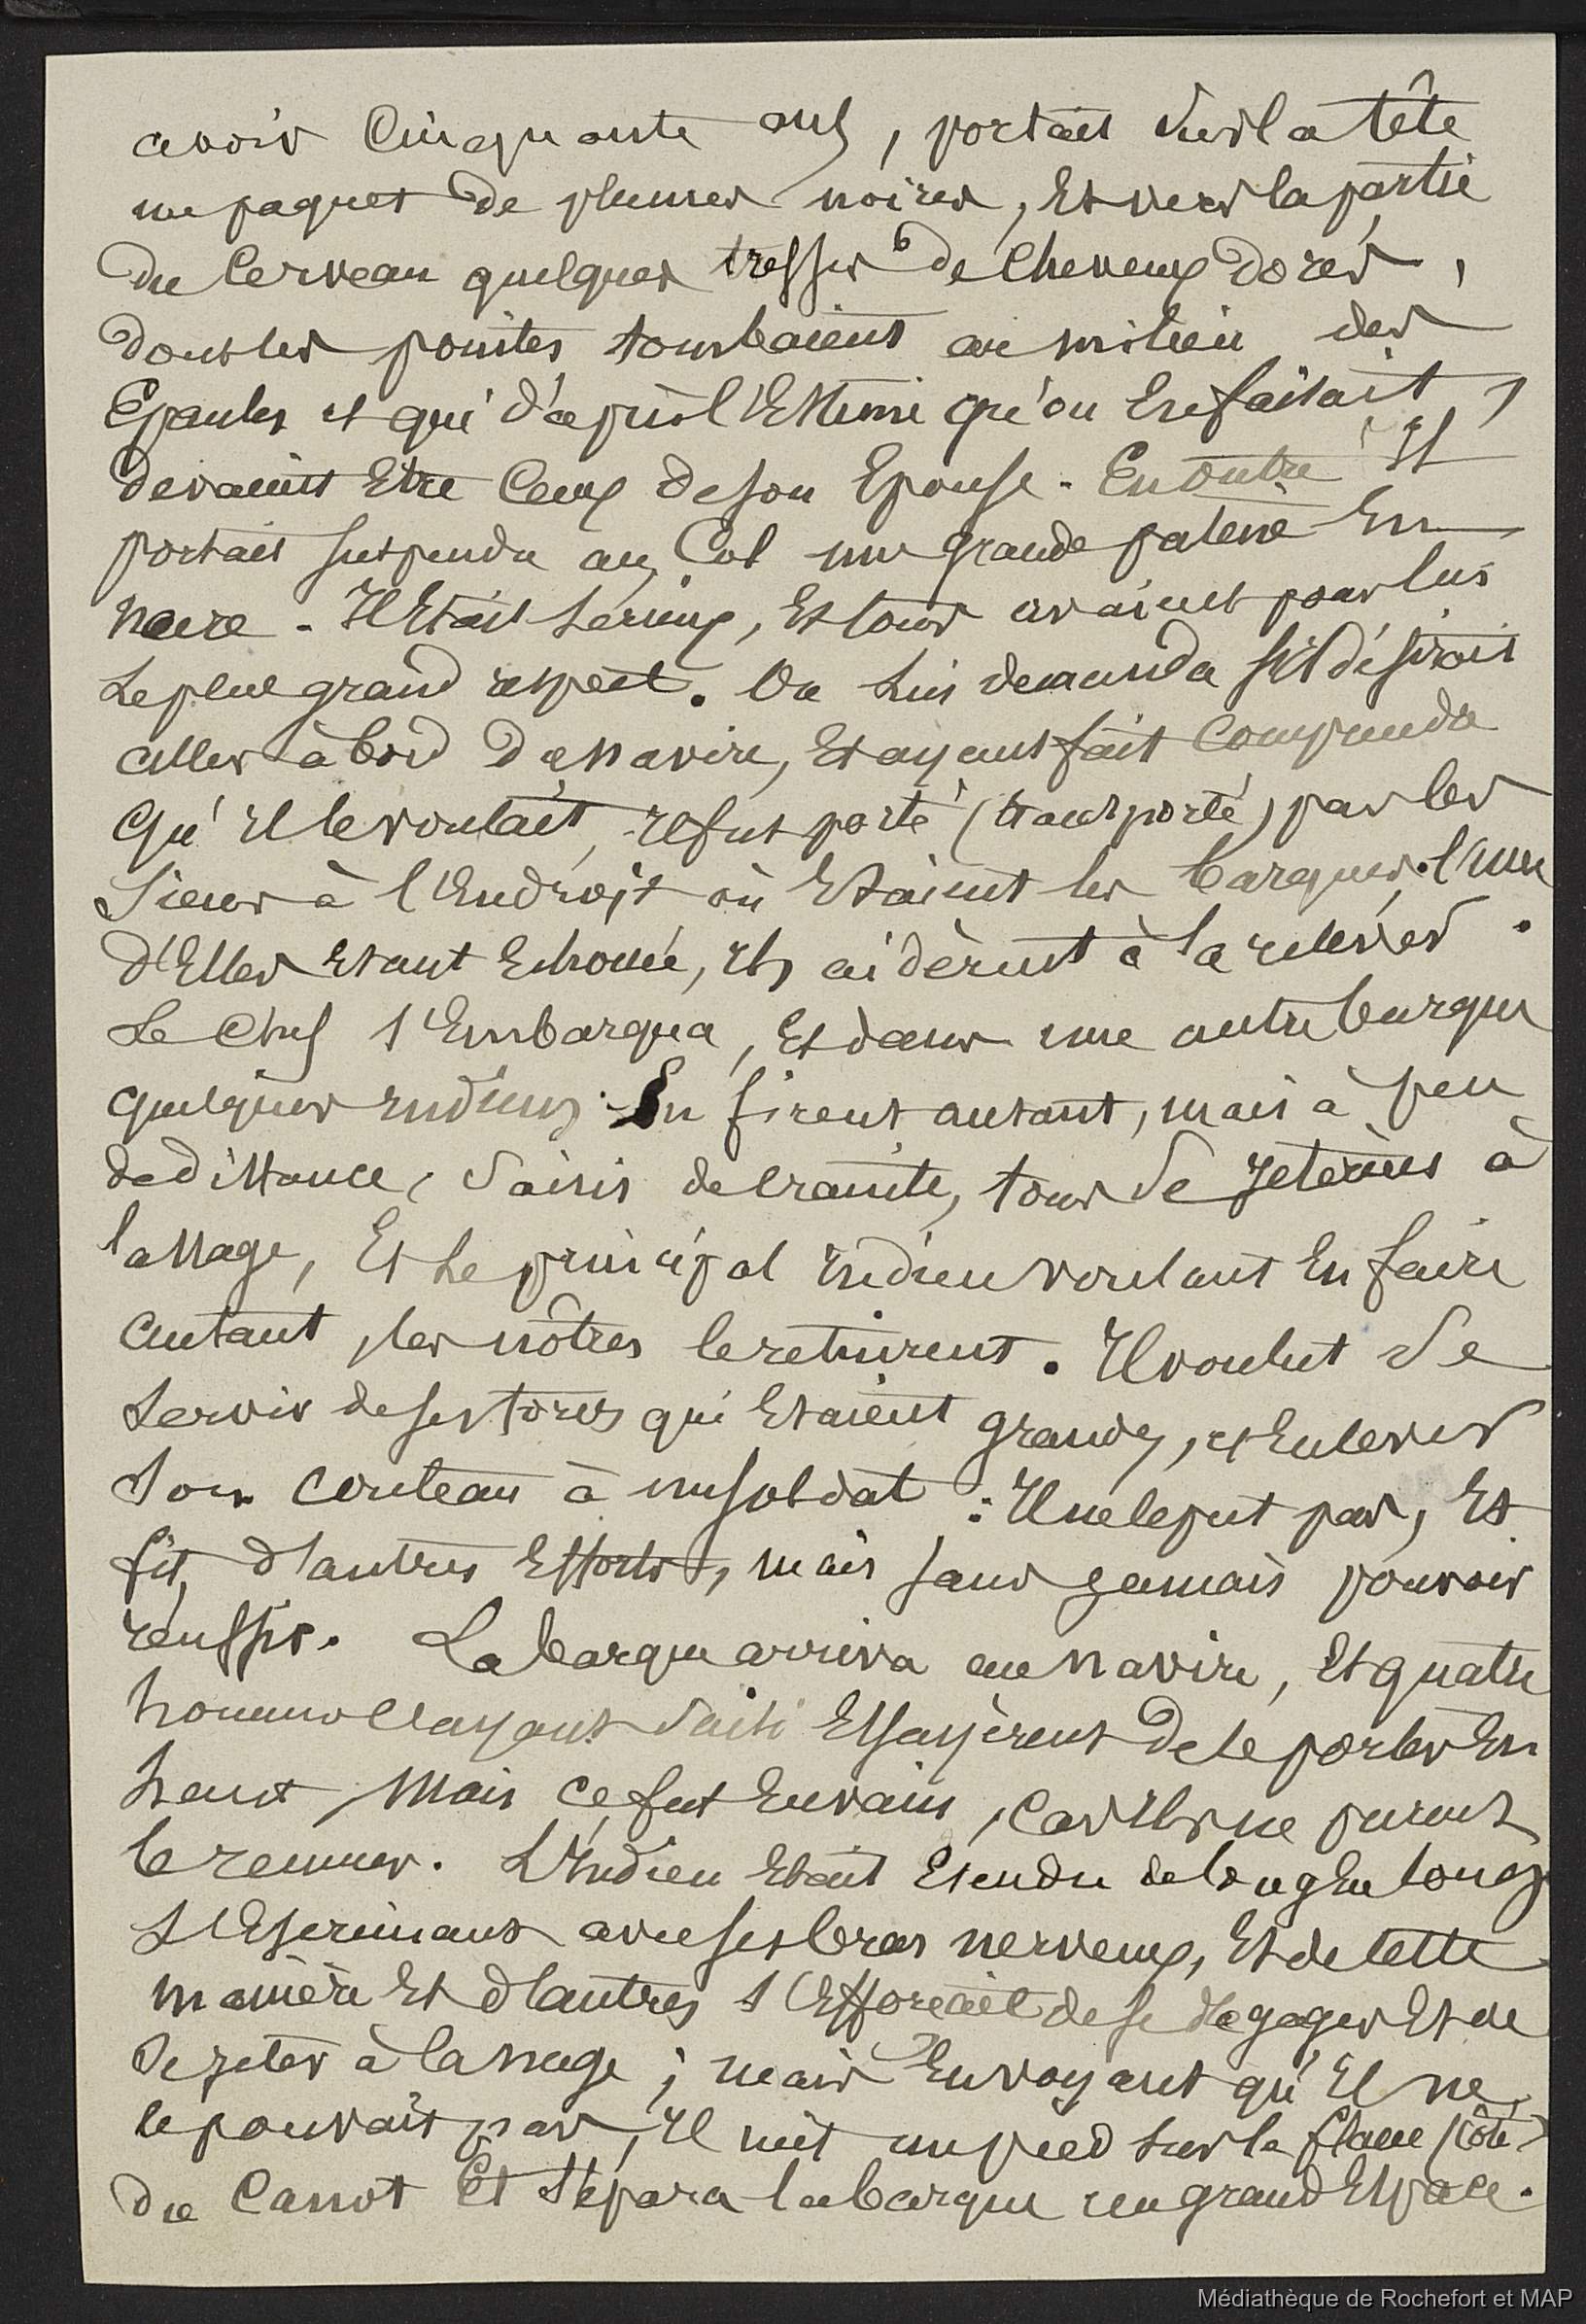 avoir Cinquante ans, portait sur la tête
un paquet de plumes noires, Et vers la partie
du Cerveau quelques tresses de Cheveux dorés,
dont les pointes tombaient au milieu des
Epaules et qui d'après l'Estime qu'on En faisait,
devaient Etre Ceux de son Epouse. En outre Il
portait suspendu au Col une grande patène En
nacre. Il Etait sérieux, Et tous avaient pour lui
Le plus grand respect. On Lui demanda s'il désirait
aller à bord du navire, Et ayant fait Comprendre
qu'Il le voulait, Il fut porté (transporté) par les
Siens à l'Endroit où Etaient les barques. l'une
d'Elles Etant Echouée, Ils aidèrent à la relever.
Le Chef s'Embarqua, Et dans une autre barque
quelques Indiens En firent autant, mais à peu
de distance, Saisis de crainte, tous Se Jetèrent à
la Nage, Et Le principal Indien voulant En faire
autant, les nôtres le retinrent. Il voulut Se
Servir de ses forces qui Etaient grandes, et Enlever
Son Couteau à un soldat : Il ne le put pas, Et
fit, d'autres Efforts, mais sans jamais pouvoir
réussir. La barque arriva au Navire, Et quatre
hommes l'ayant Saisi Essayèrent de le porter En
haut, Mais Ce fut En vain, Car Ils ne purent
le remuer. L'Indien Etait Etendu de long En long
S'Escrimant avec ses bras nerveux, Et de cette
manière Et d'autres s'Efforçait de se dégager Et de
Se jeter à la nage ; mais En voyant qu'Il ne
le pouvait pas, Il mit un pied sur le flanc (côté)
du Canot Et sépara la barque un grand Espace.
Médiathèque de Rochefort et MAP